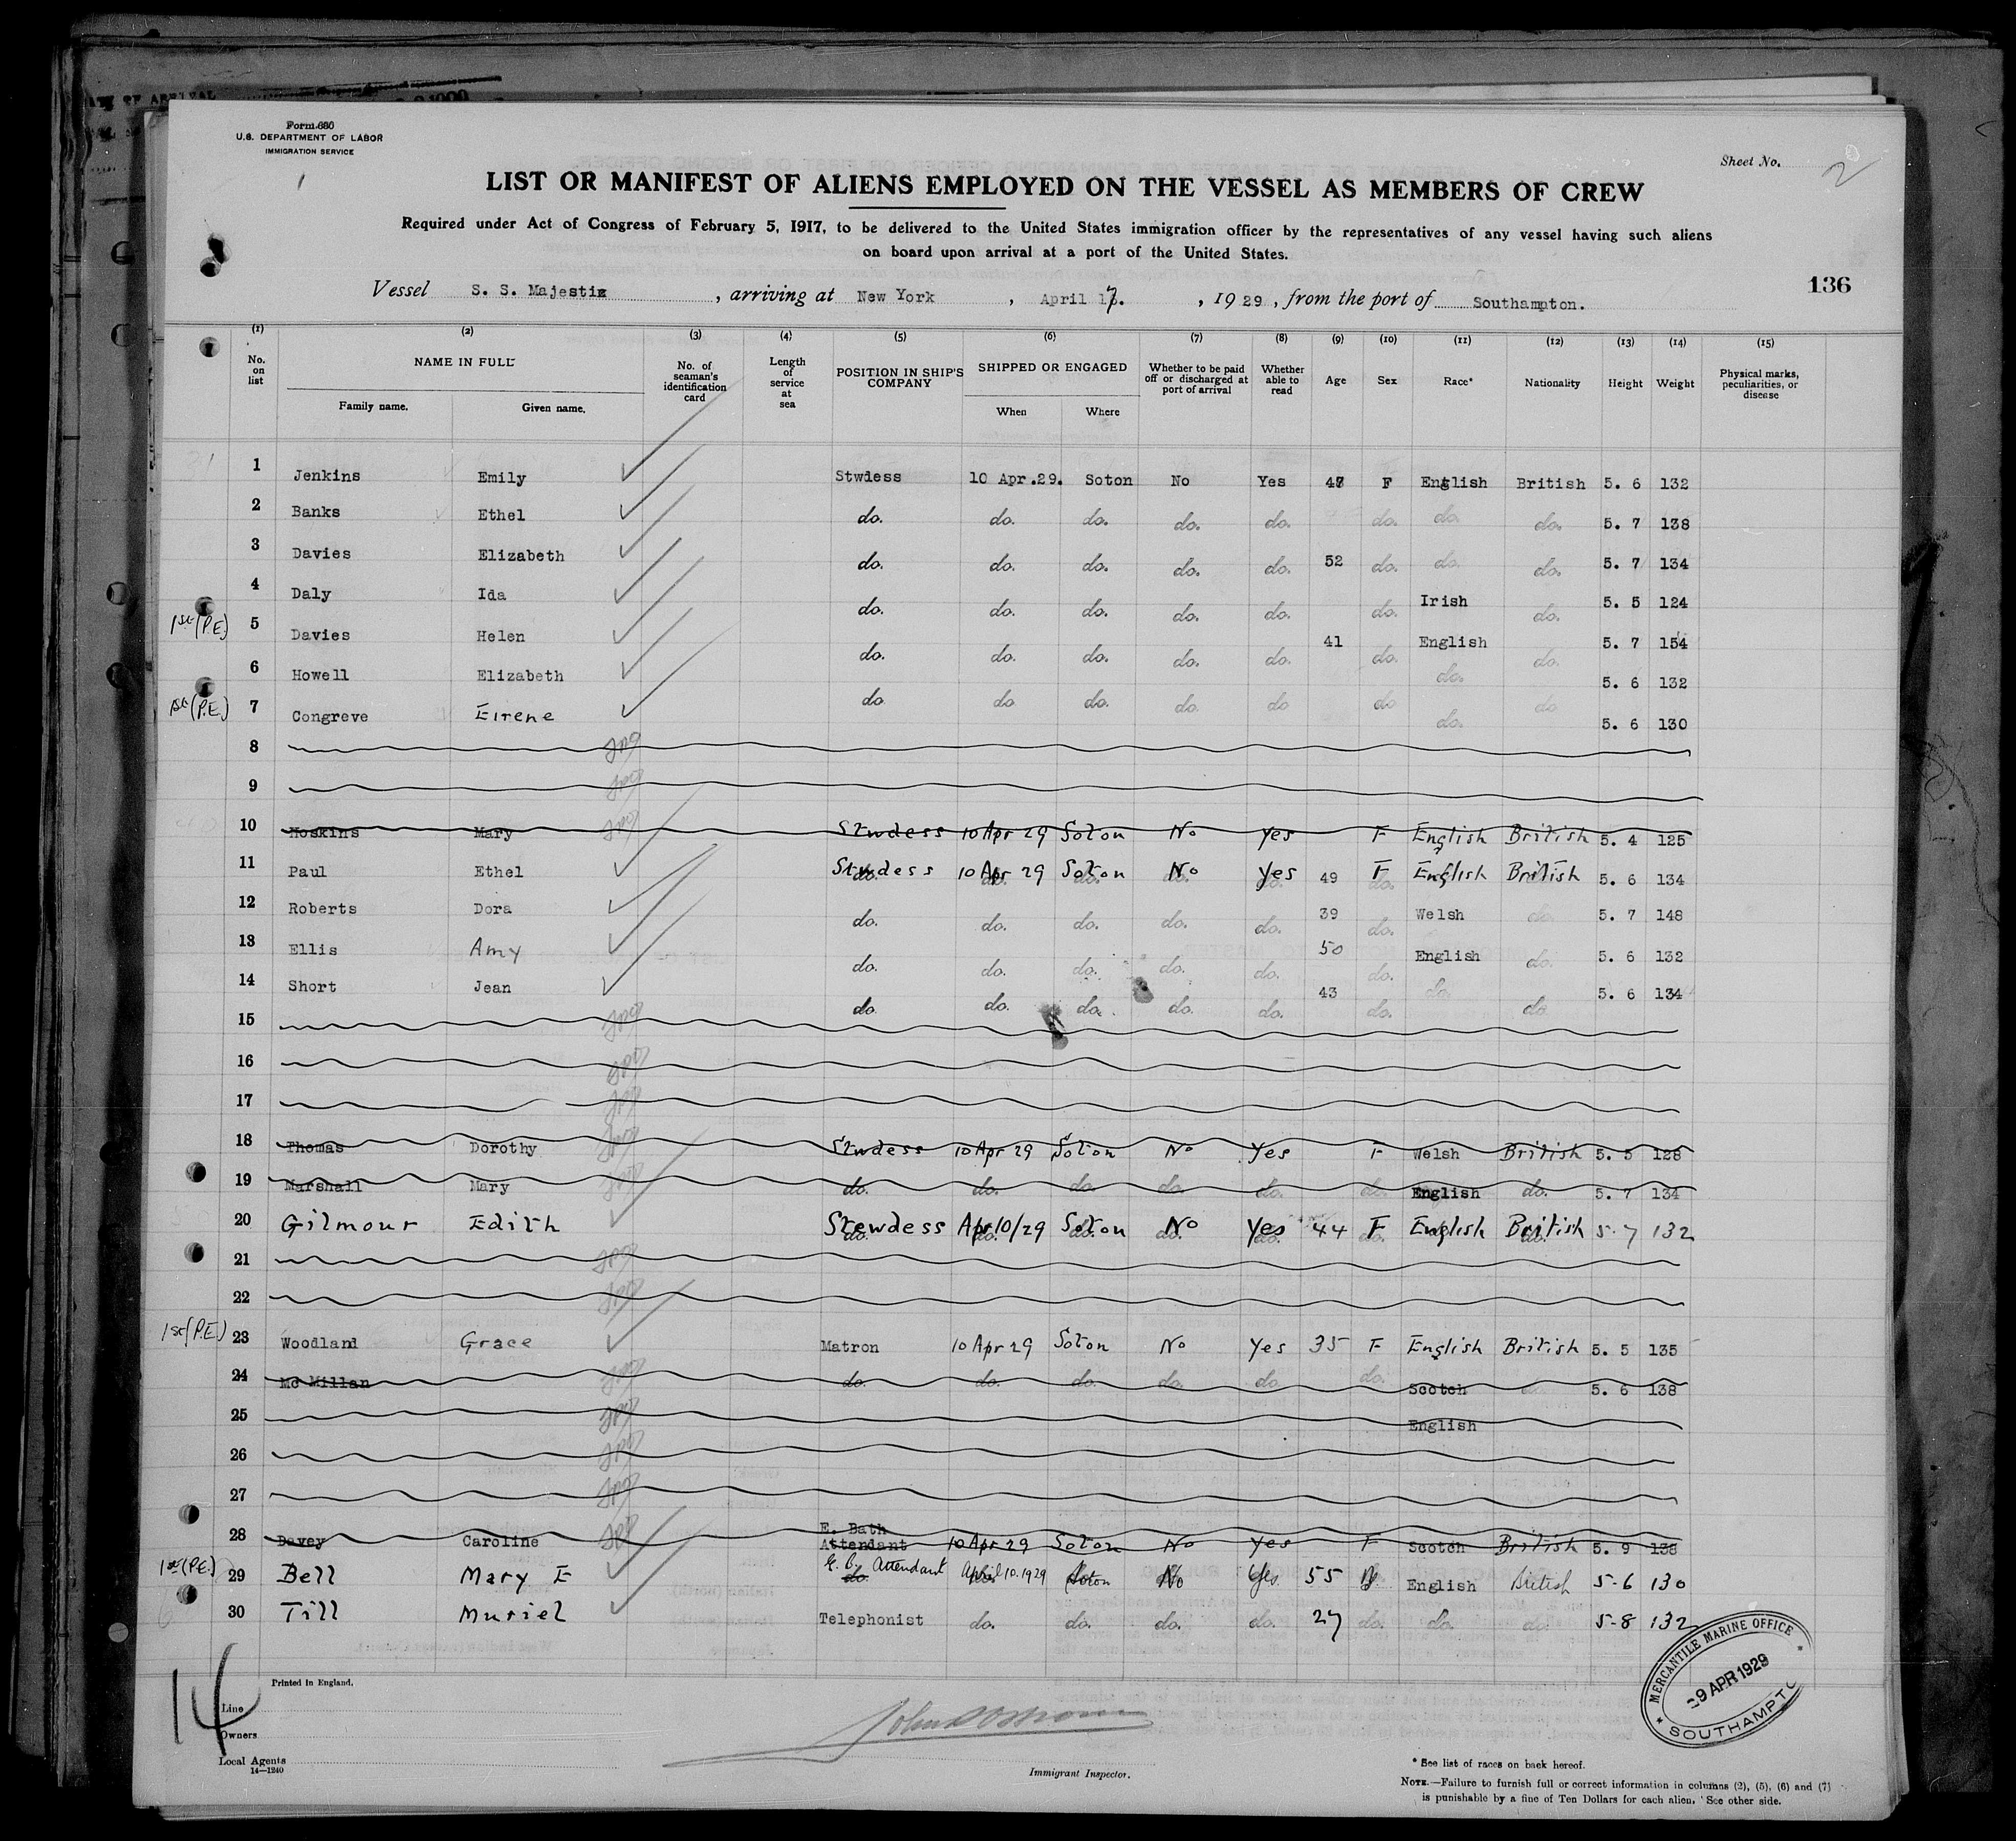 Form 680
U.S. DEPARTMENT OF LABOR
IMMIGRATION SERVICE
Sheet No. 2
LIST OR MANIFEST OF ALIENS EMPLOYED ON THE VESSEL AS MEMBERS OF CREW
Required under Act of Congress of February 5, 1917, to be delivered to the United States immigration officer by the representatives of any vessel having such aliens
on board upon arrival at a port of the United States.
136
Vessel S. S. Majestic, arriving at New York, April 17., 1929, from the port of Southampton.
(1) (2) (3) (4) (5) (6) (7) (8) (9) (10) (11) (12) (13) (14) (15)
No. on list NAME IN FULL Family name. Given name. No. of seaman's identification card Length of service at sea POSITION IN SHIP'S COMPANY SHIPPED OR ENGAGED When Where Whether to be paid off or discharged at port of arrival Whether able to read Age Sex Race* Nationality Height Weight Physical marks, peculiarities, or disease
1 Jenkins Emily Stwdess 10 Apr.29. Soton No Yes 47 F English British 5. 6 132
2 Banks Ethel do. do. do. do. do. do. do. do. 5. 7 138
3 Davies Elizabeth do. do. do. do. do. 52 do. do. do. 5. 7 134
4 Daly Ida do. do. do. do. do. do. Irish do. 5. 5 124
1st (P.E) 5 Davies Helen do. do. do. do. do. 41 do. English do. 5. 7 154
6 Howell Elizabeth do. 5. 6 132
1st (P.E.) 7 Congreve Eirene do do do. do do do do. do 5. 6 130
8
9
10 Hoskins Mary Stwdess 10 Apr 29 Soton No Yes F English British 5. 4 125
11 Paul Ethel Stwdess 10 Apr 29 Soton No Yes 49 F English British 5. 6 134
12 Roberts Dora do. do. do. do. do. 39 do. Welsh do. 5. 7 148
13 Ellis Amy do. do. do. do. do. 50 do. English do. 5. 6 132
14 Short Jean do. do. do. do. do. 43 do. do. do. 5. 6 134
15
16
17
18 Thomas Dorothy Stwdess 10 Apr 29 Soton No Yes F Welsh British 5. 5 128
19 Marshall Mary do. do. do. do. do. do. English do. 5. 7 134
20 Gilmour Edith Stewdess Apr 10/29 Soton No Yes 44 F English British 5-7 132
21
22
1st (P.E) 23 Woodland Grace Matron 10 Apr 29 Soton No Yes 35 F English British 5. 5 135
24 Mc Millan do. do. do. do. do do. Scotch do. 5. 6 138
25 English
26
27
28 Davey Caroline E. Bath Attendant 10 Apr 29 Soton No Yes F Scotch British 5. 9 138
1st (P.E.) 29 Bell Mary E Attendant April 10.1929 Soton No Yes 55 English British 5-6 130
30 Till Muriel Telephonist do. do. do. do. 27 do. do. do. 5-8 132
14
Printed in England.
Line
Owners
Local Agents
14—1240
Immigrant Inspector.
MERCANTILE MARINE OFFICE
9 APR 1929
SOUTHAMPTO
* See list of races on back hereof.
NOTE.—Failure to furnish full or correct information in columns (2), (5), (6) and (7)
is punishable by a fine of Ten Dollars for each alien. See other side.